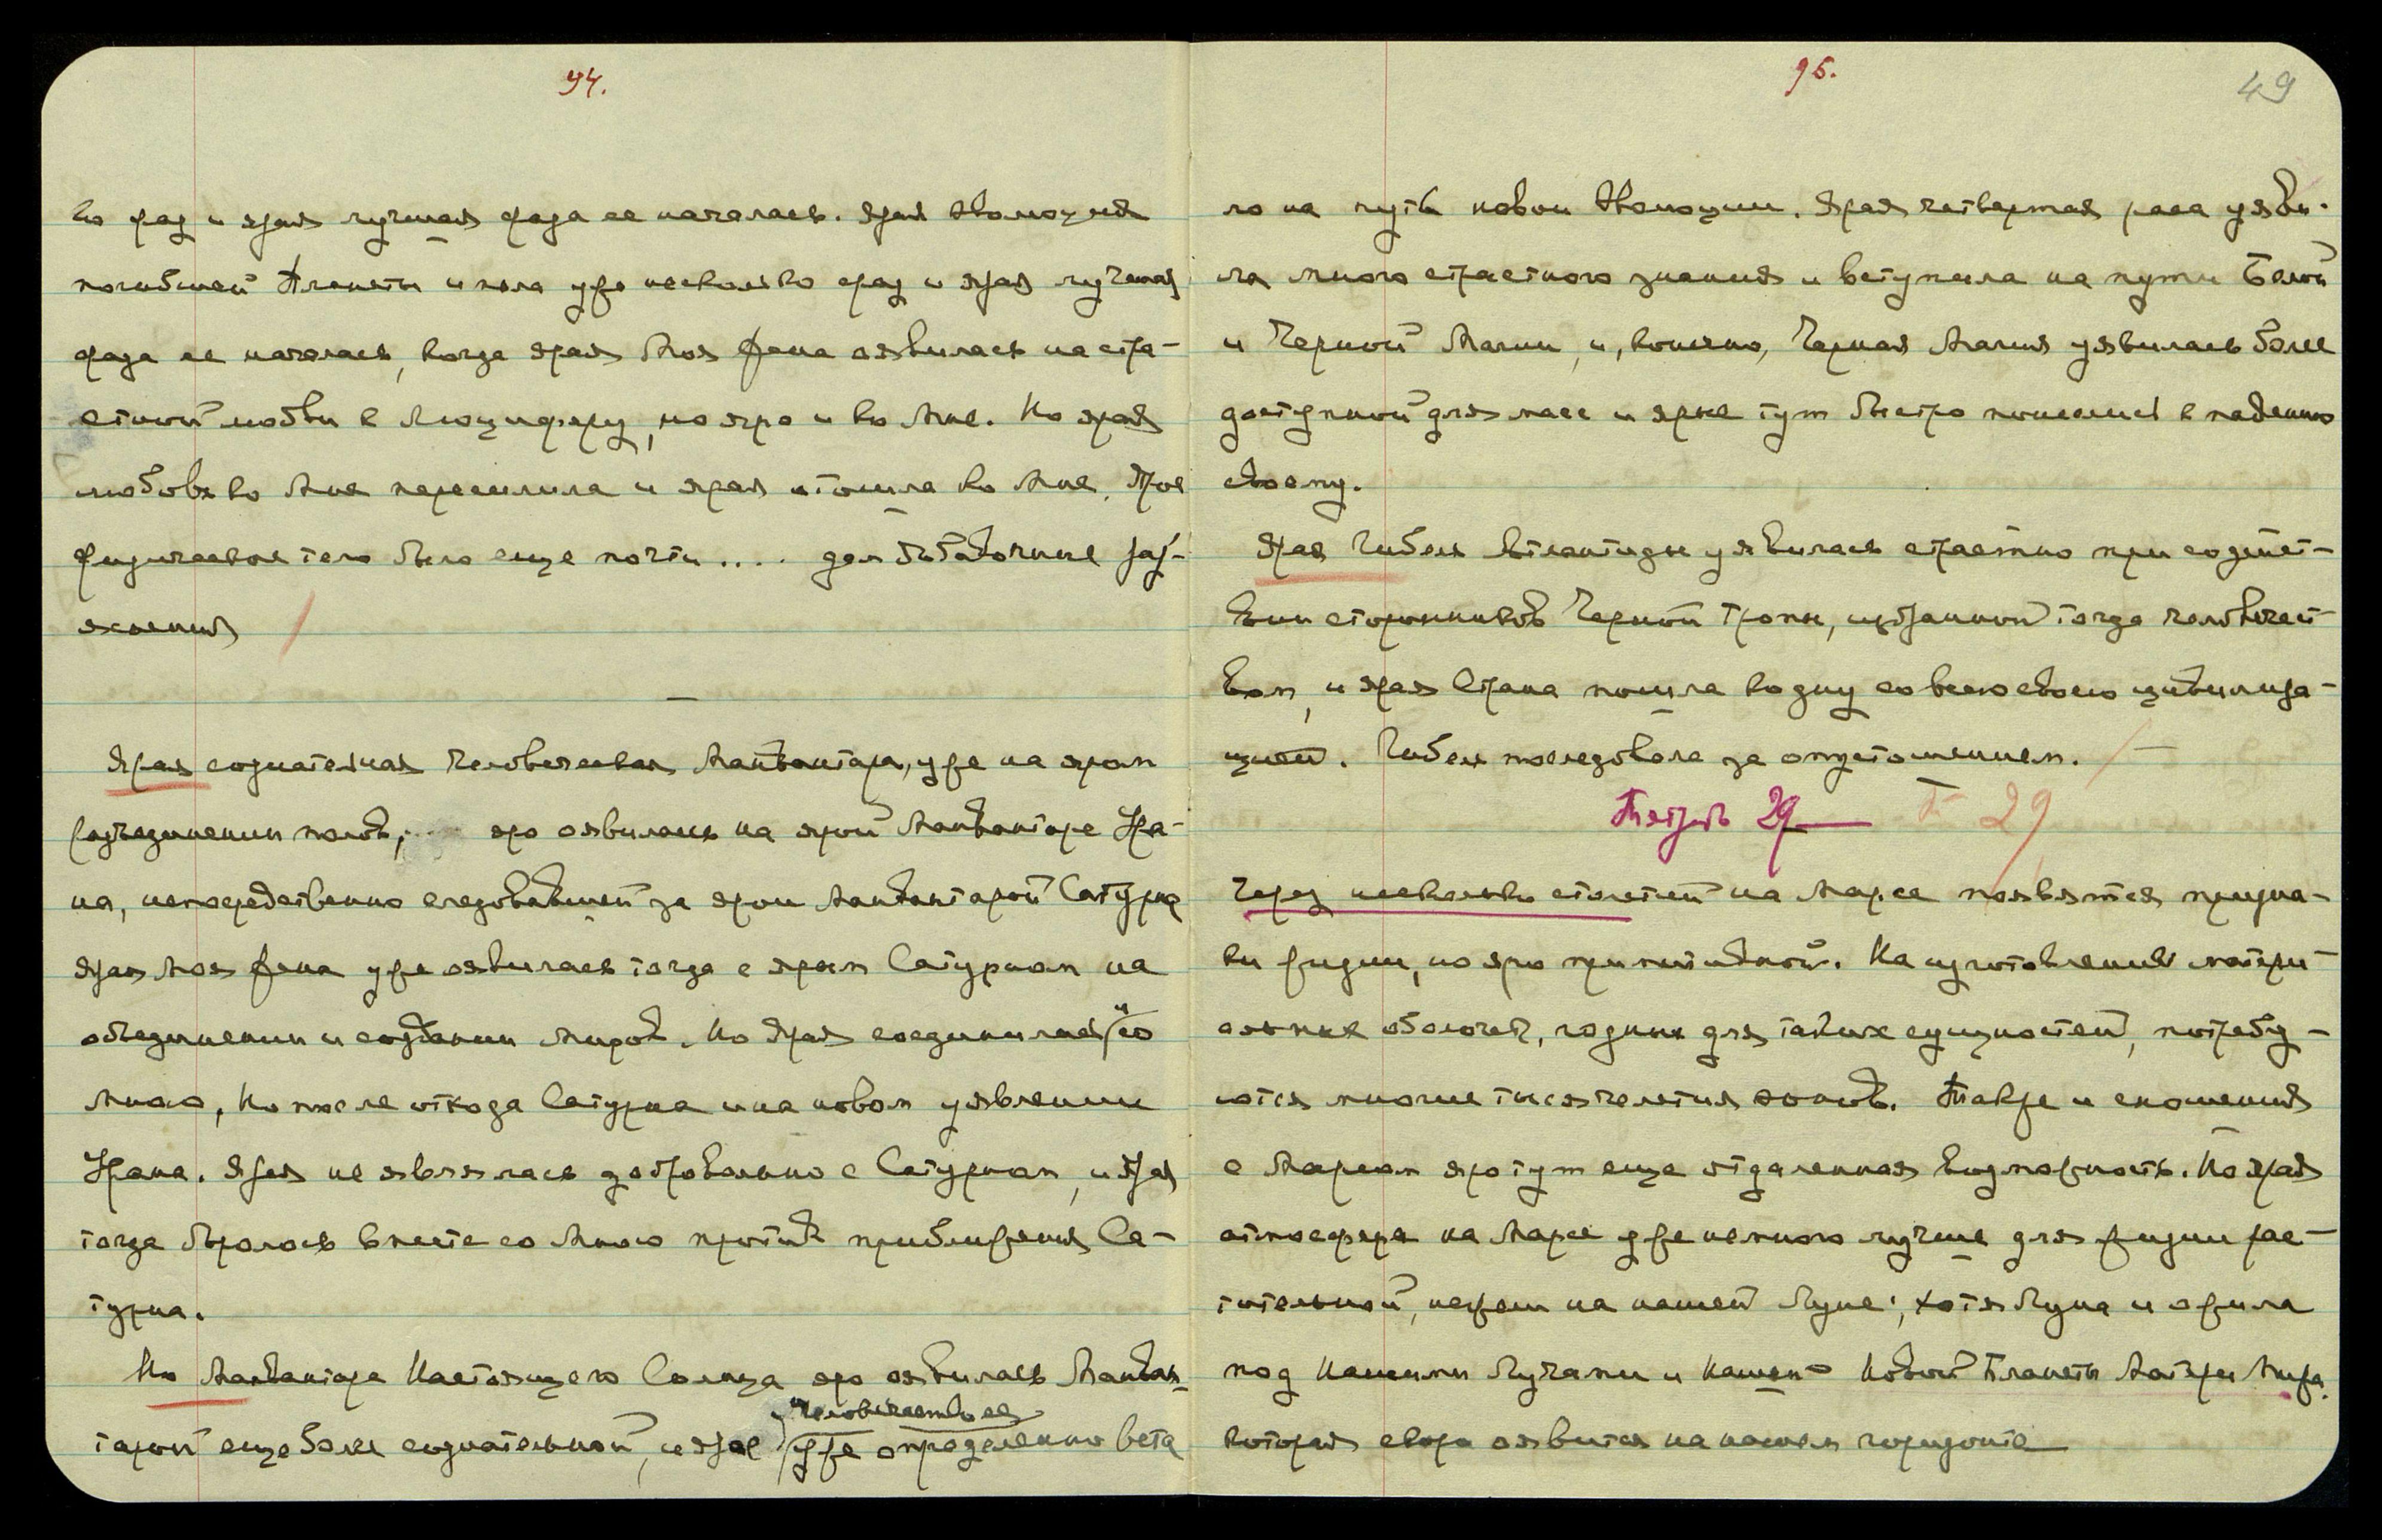 94.
ко раз и ярая лучшая фаза ее началась. Ярая эволюция
погибшей Планеты шла уже несколько раз и ярая лучшая
фаза ее началась, когда ярая Моя Жена явилась на стра-
стной любви к Люциферу, но яро и ко Мне. Но ярая
любовь ко Мне пересилила и ярая отошла ко Мне. Ярое
физическое тело было еще почти .... для
Ярая сознательная человеческая Манвантара, уже на яром
разъединении полов, яро явилась на ярой Манвантаре Ура-
на, непосредственно следовавшей за ярой Манвантарой Сатурна
Ярая Моя Жена уже явилась тогда с ярым Сатурном на
объединении и создании Миров. Но Ярая соединилась и со
Мною, но после отхода Сатурна и на новом уявлении
Урана. Ярая не являлась добровольно с Сатурном, и Ярая
тогда боролась вместе со Мною против приближения Са-
турна.
Но Манвантара Настоящего Солнца яро явилась Манван-
человечество ее
тарой еще более сознательной, и ярое уже определенно вста
95.
49
ло на путь новой Эволюции. Ярая четвертая раса уяви-
ла много страстного знания и вступила на пути Белой
и Черной Магии, и, конечно, Черная Магия уявилась более
доступной для масс и ярые тут быстро понеслись к падению
своему.
Ярая гибель Атлантиды уявилась страстно при содейст-
вии сторонников Черной Тропы, избранной тогда человечест
вом, и ярая Страна пошла ко дну со всею своею цивилиза-
цией. Гибель последовала за опустошением.
Тетрадь 29
Т 29
Через несколько столетий на Марсе появятся призна-
ки жизни, но яро примитивной. На изготовление матери-
альных оболочек, годных для таких сущностей, потребу-
ются многие тысячелетия эонов. Также и сношения
с Марсом яро тут еще отдаленная возможность. Но ярая
атмосфера на Марсе уже немного лучше для жизни рас-
тительной, нежели на нашей Луне, хотя Луна и ожила
под Нашими Лучами и Нашей Новой Планеты Матери Мира,
которая скоро явится на нашем горизонте